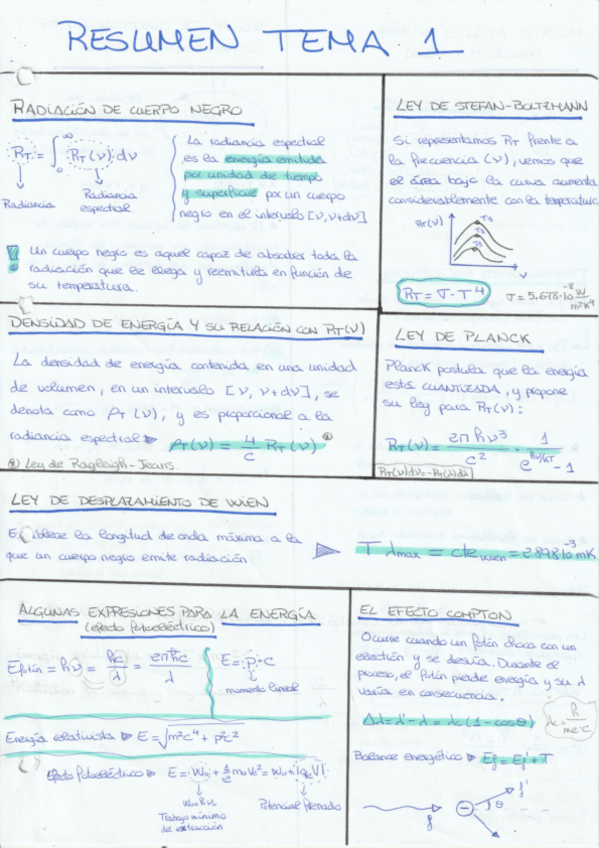 RESUMEN TEMA 1
RADIACIÓN DE CUERPO NEGRO
R_T = ∫₀^∞ R_T(ν) dν
Radiancia
Radiancia
espectral
La radiancia espectral
es la energía emitida
por unidad de tiempo
y superficie por un cuerpo
negro en el intervalo [ν, ν+dν]
! Un cuerpo negro es aquel capaz de absorber toda la
radiación que le llega y reemitirla en función de
su temperatura.
LEY DE STEFAN-BOLTZMANN
Si representamos R_T frente a
la frecuencia (ν), vemos que
el área bajo la curva aumenta
considerablemente con la temperatura
R_T(ν)
T3
ν
R_T = σ · T⁴
σ = 5.678·10⁻⁸ W/m²K⁴
DENSIDAD DE ENERGÍA Y SU RELACIÓN CON R_T(ν)
La densidad de energía contenida en una unidad
de volumen, en un intervalo [ν, ν+dν], se
denota como ρ_T(ν), y es proporcional a la
radiancia espectral ▶ ρ_T(ν) = 4/c R_T(ν)
Ley de Rayleigh-Jeans
LEY DE PLANCK
Planck postula que la energía
está CUANTIZADA, y propone
su ley para R_T(ν):
R_T(ν) = 2πhν³/c² · 1/(e^(hν/kT) - 1)
R_T(ν)dν = -R_T(λ)dλ
LEY DE DESPLAZAMIENTO DE WIEN
la longitud de onda máxima a la
que un cuerpo negro emite radiación
▷ T λmax = cte wien = 2.898·10⁻³ mK
ALGUNAS EXPRESIONES PARA LA ENERGÍA
(efecto fotoeléctrico)
E fotón = hν = hc/λ = 2πħc/λ
E = p·c
momento lineal
Energía relativista ▶ E = √(m²c⁴ + p²c²)
Efecto fotoeléctrico ▶ E = W₀ + ½ m₀v₀² = W₀ + |qe V|
W₀ = hν₀
Trabajo mínimo
de extracción
Potencial frenado
EL EFECTO COMPTON
Ocurre cuando un fotón choca con un
electrón y se desvía. Durante el
proceso, el fotón pierde energía y su λ
varía en consecuencia.
Δλ = λ' - λ = λc (1 - cosθ)
λc = h/(me·c)
Balance energético ▶ Ef = Ef' + T
f'
θ
f